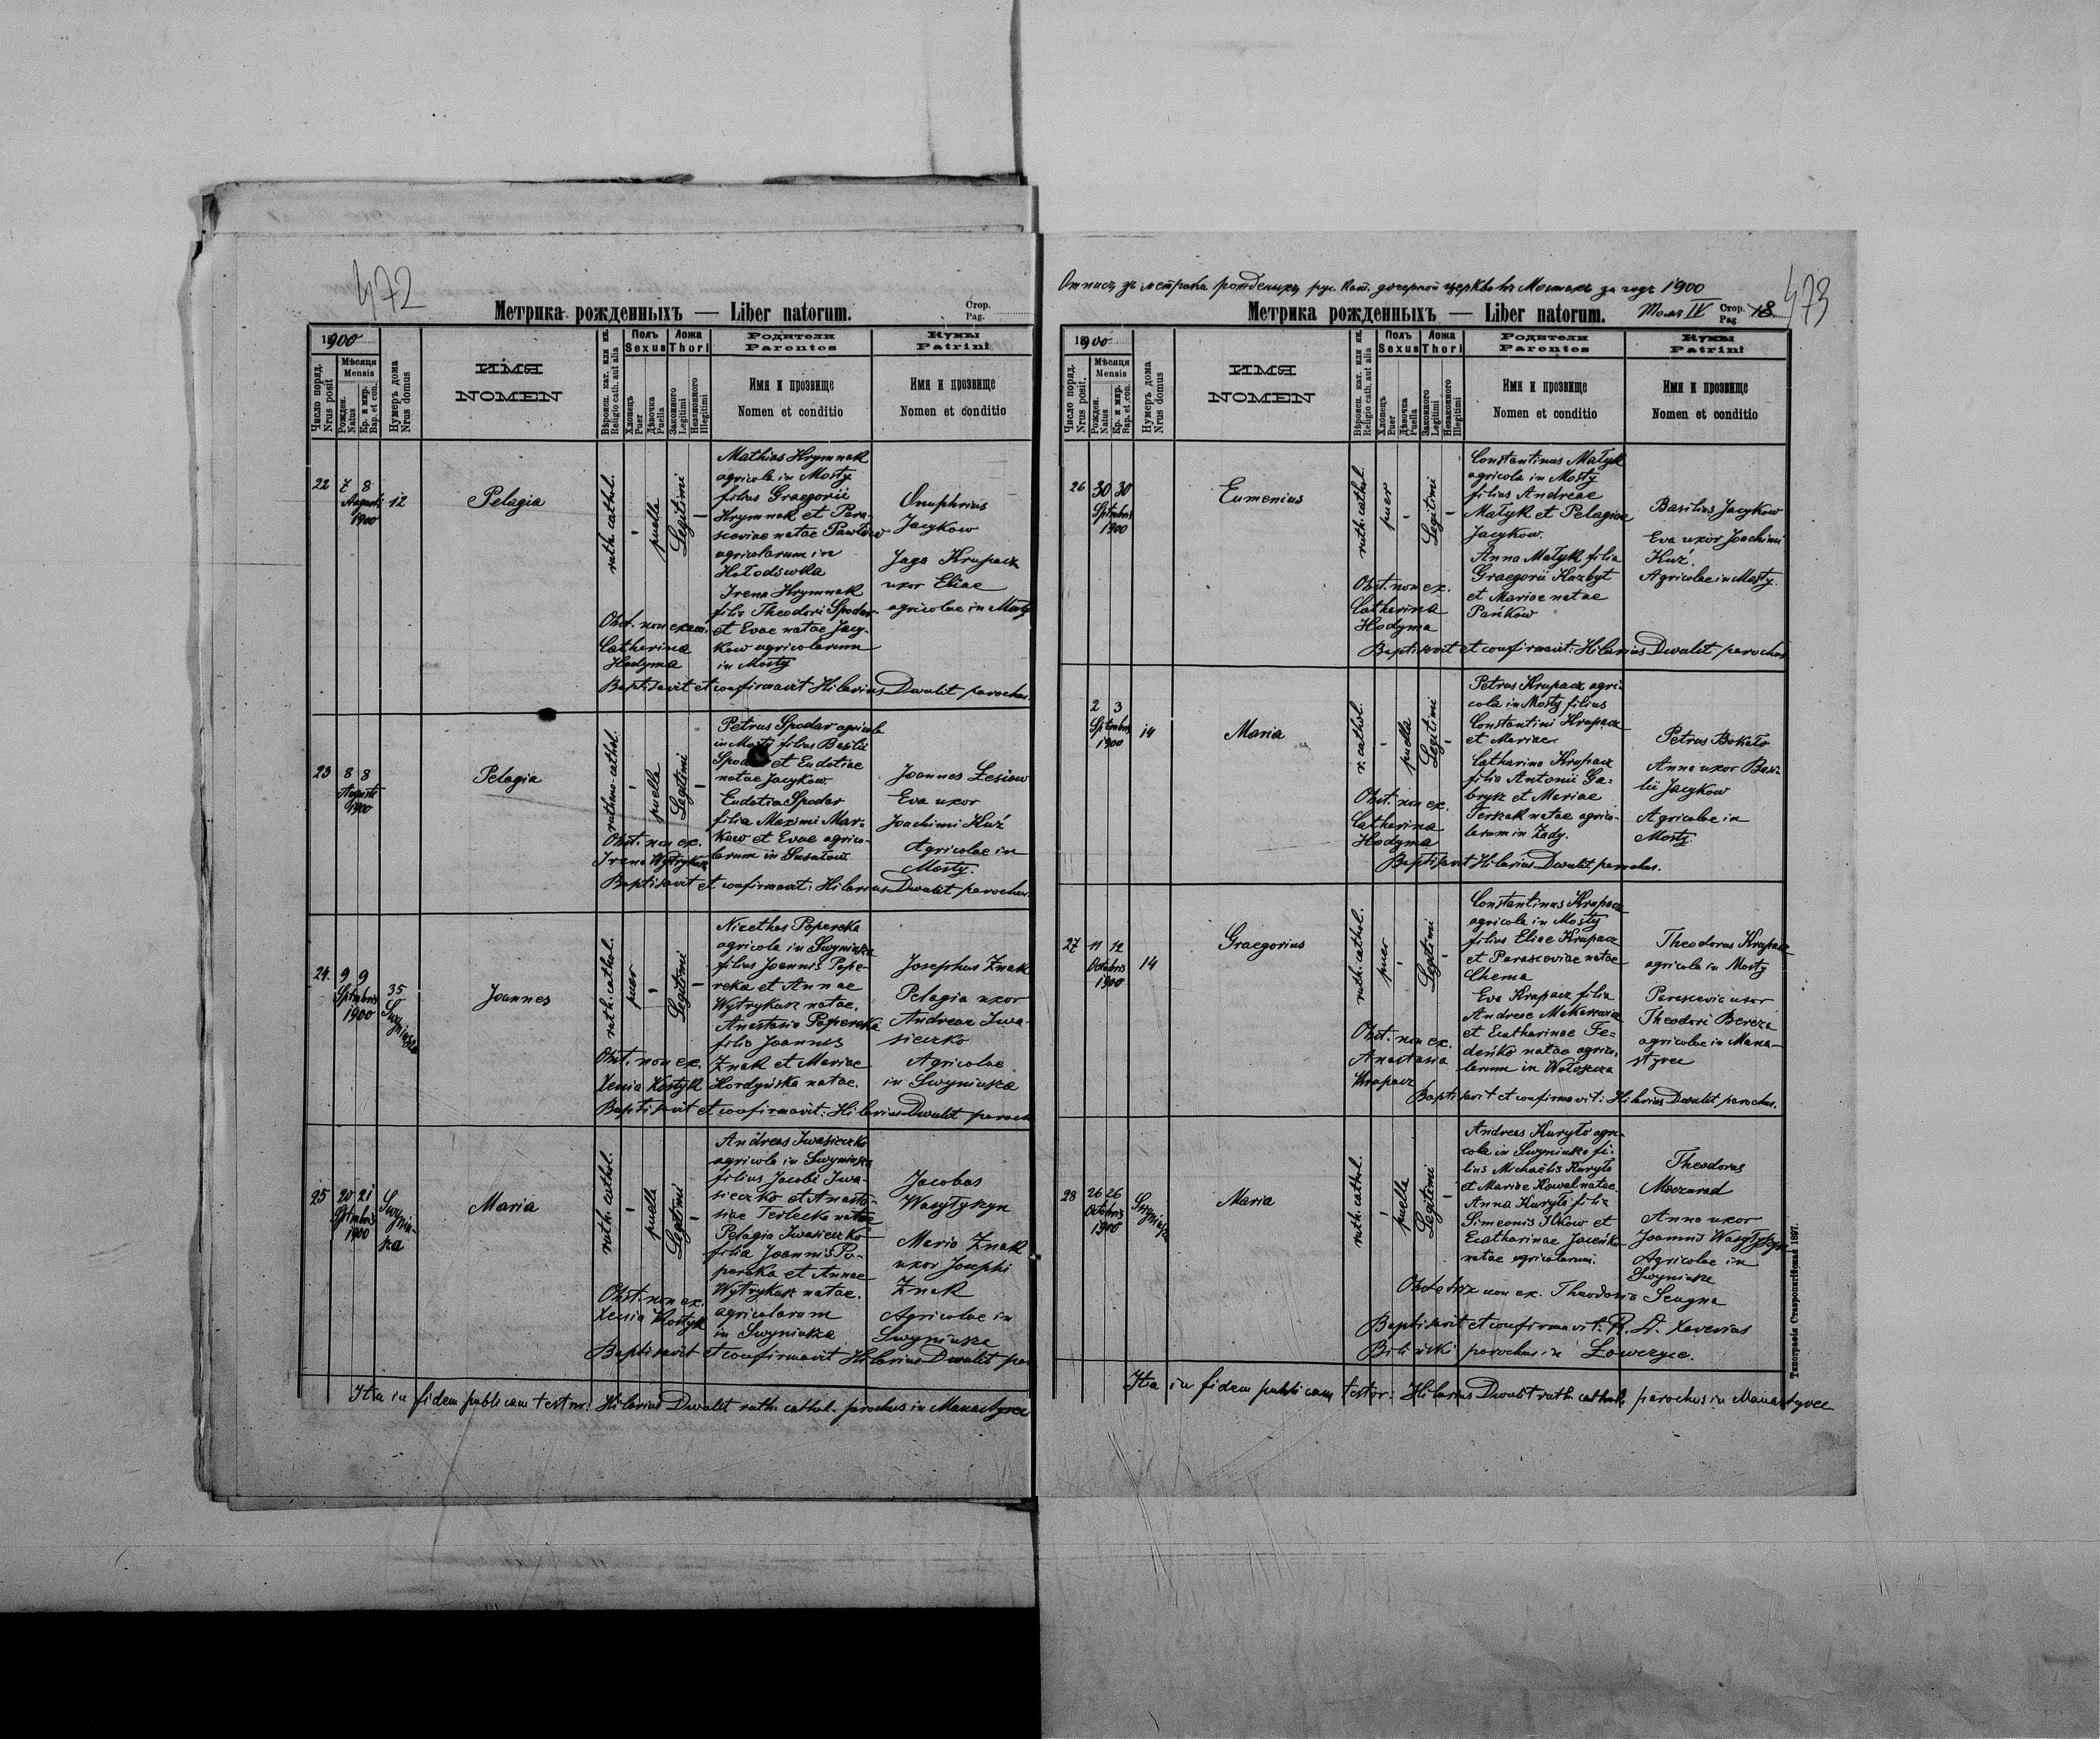 472
Метрика рожденныхъ — Liber natorum.
Стор.
Pag.
1900
Число поряд.
Nrus posit
Мѣсяця
Mensis
Рожден.
Natus
Кр. и мир.
Bap. et con.
Нумеръ дома
Nrus domus
ИМЯ
NOMEN
Вѣроисп. кат. или ин.
Religio cath. aut alia
Полъ
Sexus
Хлопецъ
Puer
Дѣвочка
Puella
Ложа
Thori
Законного
Legitimi
Незаконного
Illegitimi
Родители
Parentes
Имя и прозвище
Nomen et conditio
Кумы
Patrini
Имя и прозвище
Nomen et conditio
22
7 8
Augusti
1900
12
Pelagia
ruth. cathol.
puella
Legitimi
Mathias Hrymnak
agricola in Mosty
filius Graegorii
Hrymnak et Para-
sceviae natae Pawłow
agricolarum in
Hołodówka
Irena Hrymnak
filia Theodori Spodar
et Evae natae Jacy-
kow agricolarum
in Mosty
Onuphrius
Jacykow
Jaga Krupacz
uxor Eliae
agricolae in Mosty
Obst. non exam.
Catherina
Hodyma
Baptisavit et confirmavit Hilarius Dwulit parochus.
23
8 8
Augusti
1900
Pelagia
rutheno-cathol.
puella
Legitimi
Petrus Spodar agricola
in Mosty filius Basilii
Spodar et Eudotiae
natae Jacykow.
Eudotia Spodar
filia Maximi Mar-
kow et Evae agrico-
larum in Susułow
Joannes Lesiow
Eva uxor
Joachimi Kuź
Agricolae in
Mosty.
Obst. non ex.
Irena Wytrykusz
Baptisavit et confirmavit: Hilarius Dwulit parochus.
24.
9 9
Sptmbris
1900
35
Swyniusza
Joannes
ruth. cathol.
puer
Legitimi
Nicethas Popereka
agricola in Swyniusza
filius Joannis Pope-
reka et Annae
Wytrykusz natae.
Anastasia Popereka
filia Joannis
Znak et Mariae
Hordyńska natae.
Josephus Znak
Pelagia uxor
Andreae Iwa-
sieczko
Agricolae
in Swyniusza
Obst. non ex.
Xenia Kostyk
Baptisavit et confirmavit: Hilarius Dwulit paroch
25
20 21
Sptmbris
1900
Swyniu-
sza
Maria
ruth. cathol.
puella
Legitimi
Andreas Iwasieczko
agricola in Swyniusza
filius Jacobi Iwa-
sieczko et Anasta-
siae Terlecka natae
Pelagia Iwasieczko
filia Joannis Po-
pereka et Annae
Wytrykusz natae.
agricolarum
in Swyniusza
Jacobus
Wasyłyszyn
Maria Znak
uxor Josephi
Znak
Agricolae in
Swyniusza
Obst. non ex.
Xenia Kostyk
Baptisavit et confirmavit Hilarius Dwulit pa
Ita in fidem publicam testor: Hilarius Dwulit ruth. cathol. parochus in Manastyrec
Отписъ зъ метрика рожденыхъ рус. кат. дочерной церкви въ Мостахъ за годъ 1900
473
Метрика рожденныхъ — Liber natorum.
Томъ IV
Стор.
Pag.
18
1900
Число поряд.
Nrus posit.
Мѣсяця
Mensis
Рожден.
Natus
Кр. и мир.
Bap. et con.
Нумеръ дома
Nrus domus
ИМЯ
NOMEN
Вѣроисп. кат. или ин.
Religio cath. aut alia
Полъ
Sexus
Хлопецъ
Puer
Дѣвочка
Puella
Ложа
Thori
Законного
Legitimi
Незаконного
Illegitimi
Родители
Parentes
Имя и прозвище
Nomen et conditio
Кумы
Patrini
Имя и прозвище
Nomen et conditio
26
30 30
Sptmbris
1900
Eumenius
ruth. cathol.
puer
Legitimi
Constantinus Małyk
agricola in Mosty
filius Andreae
Małyk et Pelagiae
Jacykow.
Anna Małyk filia
Graegorii Kazbyt
et Mariae natae
Pańkow
Basilius Jacykow
Eva uxor Joachimi
Kuź.
Agricolae in Mosty.
Obst. non ex.
Catharina
Hodyma
Baptisavit et confirmavit: Hilarius Dwulit parochus
2 3
Sptembris
1900
14
Maria
r. cathol.
puella
Legitimi
Petrus Krupacz agri-
cola in Mosty filius
Constantini Krupacz
et Mariae.
Catharina Krupacz
filia Antonii Ga-
brysz et Mariae
Terszak natae agrico-
larum in Zady.
Petrus Bokało
Anna uxor Basi-
lii Jacykow
Agricolae in
Mosty.
Obst. non ex.
Catharina
Hodyma
Baptisavit Hilarius Dwulit parochus.
27
11 12
Octobris
1900
14
Graegorius
ruth. cathol.
puer
Legitimi
Constantinus Krupacz
agricola in Mosty
filius Eliae Krupacz
et Parasceviae natae
Chema
Eva Krupacz filia
Andreae Makarewicz
et Ecatharinae Fe-
deńko natae agrico-
larum in Wołoszcza
Theodorus Krupacz
agricola in Mosty
Parascevia uxor
Theodori Bereza
agricolae in Mana-
styrec
Obst. non ex.
Anastasia
Krupacz
Baptisavit et confirmavit: Hilarius Dwulit parochus.
28
26 26
Octobris
1900
Swyniusza
Maria
ruth. cathol.
puella
Legitimi
Andreas Kuryło agri-
cola in Swyniusza fi-
lius Michaelis Kuryło
et Mariae Kowal natae.
Anna Kuryło filia
Simeonis Ilkow et
Ecatharinae Jaceńko
natae agricolarum.
Theodorus
Moczurad
Anna uxor
Joannis Wasyłyszyn
Agricolae in
Swyniusza
Obstetrix non ex. Theodosia Scuyna
Baptisavit et confirmavit: R. D. Xaverius
Biliński parochus in Łowczyce.
Ita in fidem publicam testor: Hilarius Dwulit ruth. cathol. parochus in Manastyrec
Типографія Ставропигійская 1897.